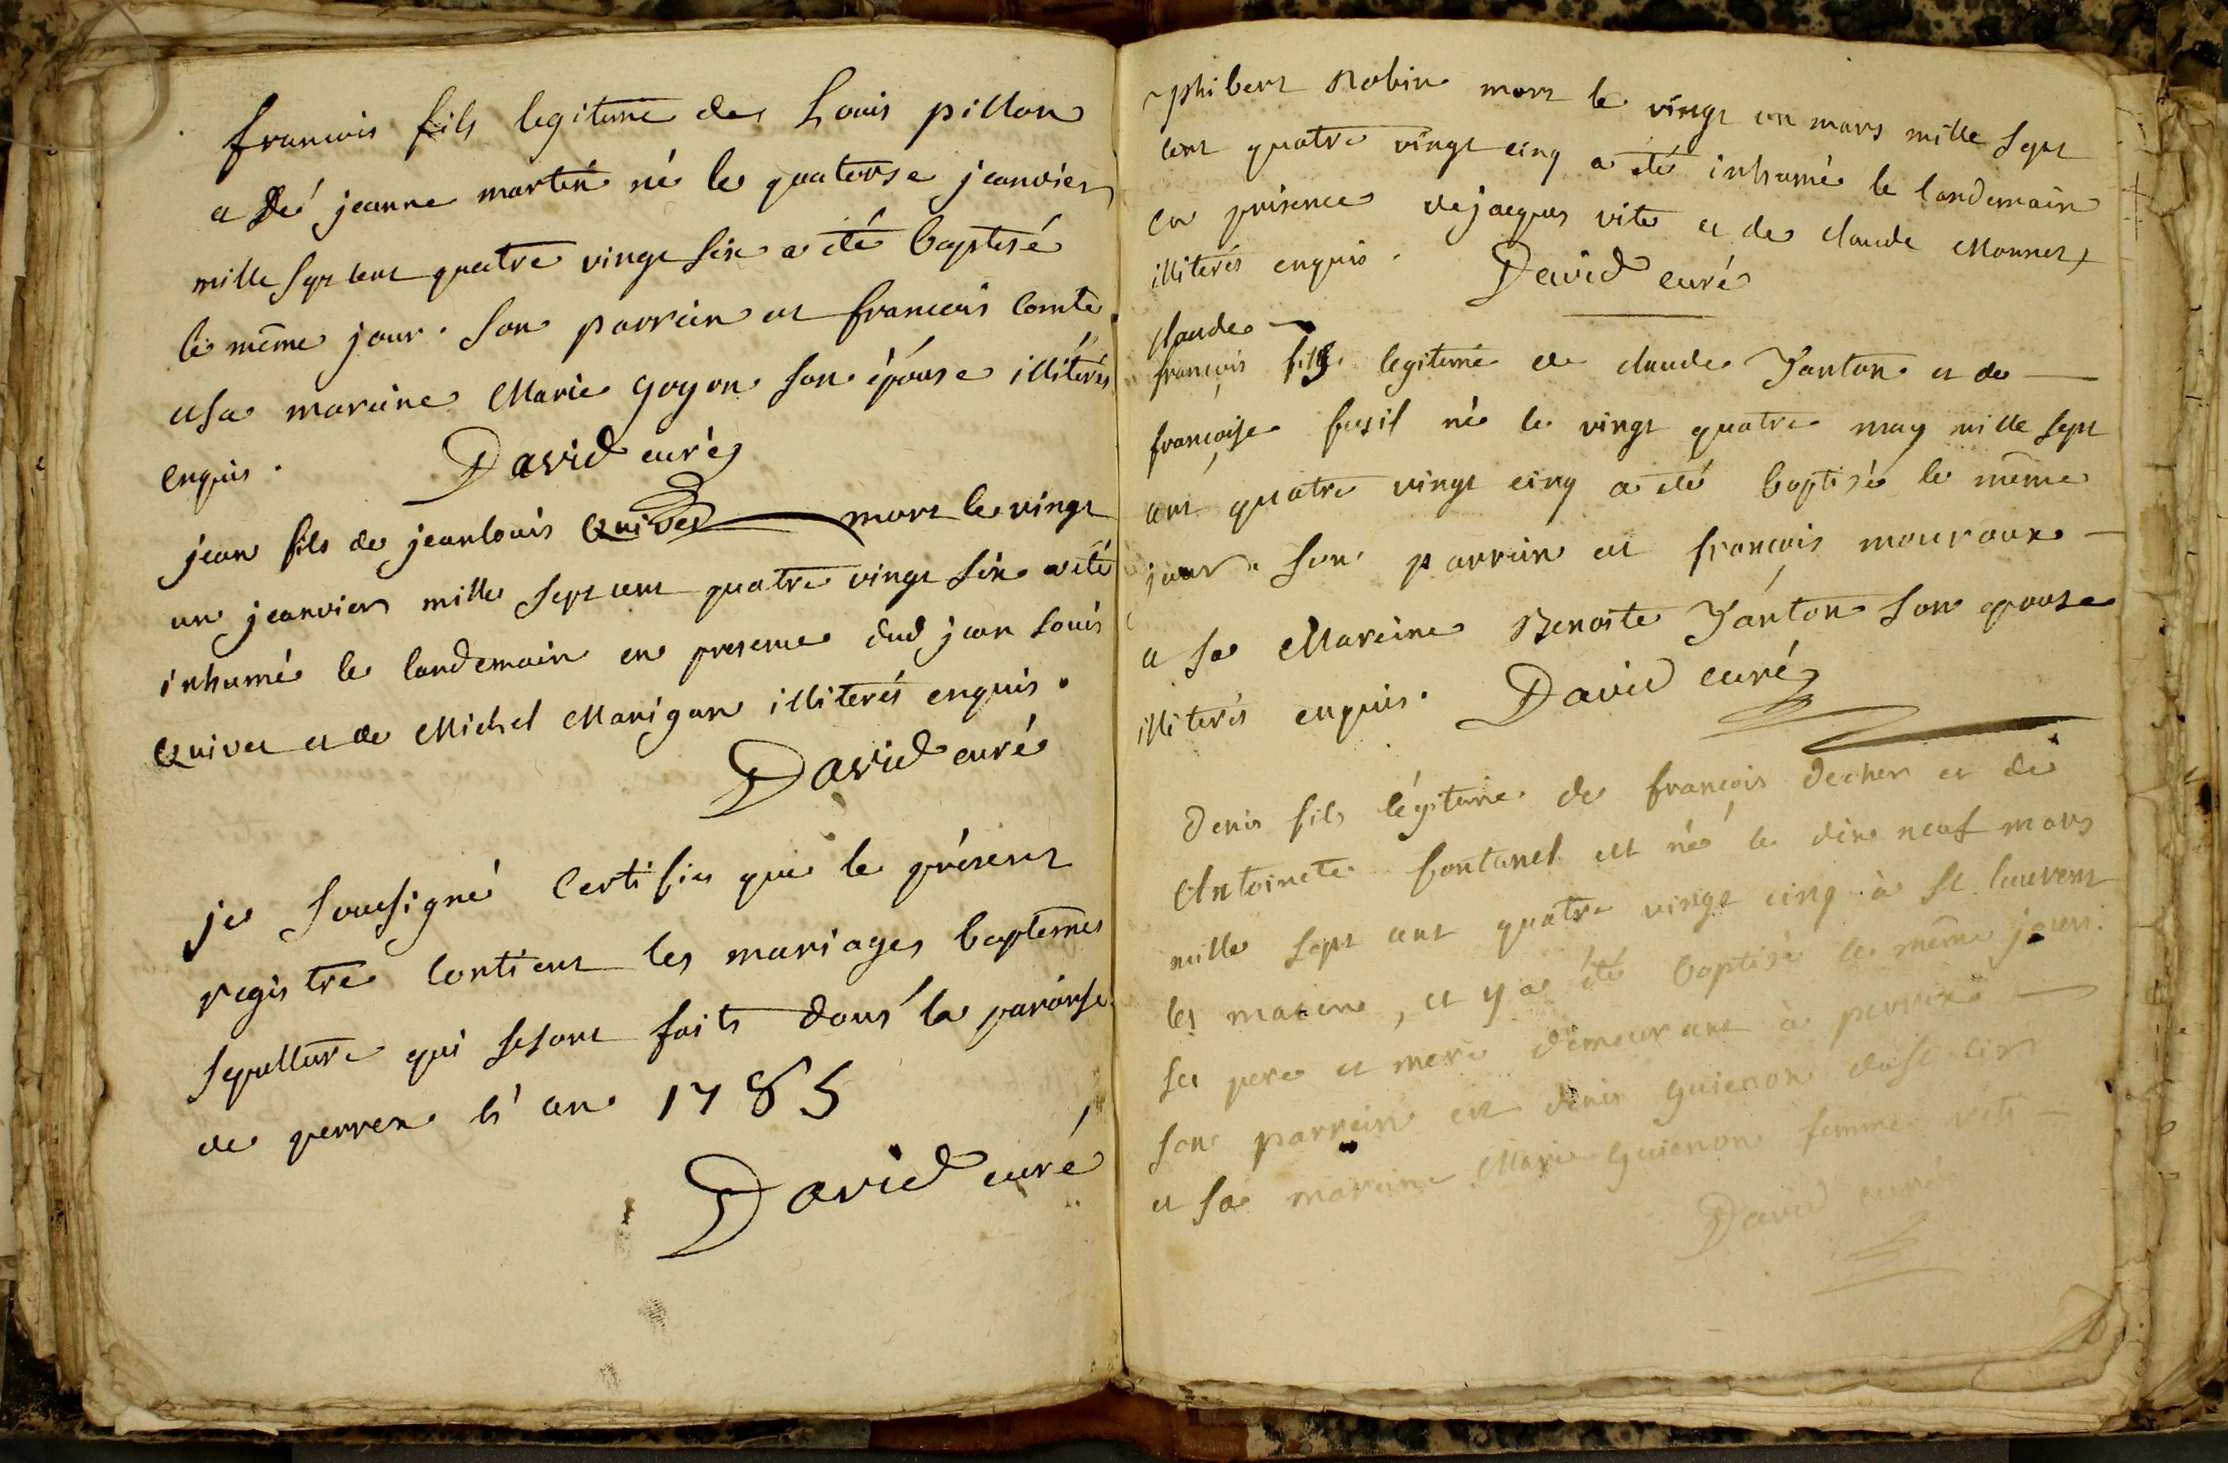 francois fils legitime de Louis pillon
et de jeanne martin né le quatorse jeanvier
mille sept cent quatre vingt six a été baptisé
le même jour. son parrain est francois Comte
et sa maraine Marie goyon son épouse illitérés
enquis. David curé
jean fils de jeanlouis Quivet mort le vingt
un jeanvier mille sept cent quatre vingt six a été
inhumé le landemain en presence dud jean louis
Quivet et de Michel Marigan illiterés enquis.
David curé
je soussigné Certifie que le présent
registre Contient les mariages baptemes
sepulture qui se sont faits dans la paroisse
de perrex l'an 1785
David curé
philibert Robin mort le vingt un mars mille sept
cent quatre vingt cinq a été inhumé le landemain
en présence de jacques vite et de claude Monnet
illiterés enquis. David curé
claude
francois fils legitime de claude Yanton et de
francoise fusil né le vingt quatre may mille sept
cent quatre vingt cinq a été baptisé le même
jour. son parrain est francois mouroux
et sa Maraine Benoite Yanton son epouse
illiterés enquis. David curé
Denis fils légitime de francois decher et de
Antoinete fontanel est né le dix neuf mars
mille sept cent quatre vingt cinq à st laurent
les macon, et y a été baptisé le même jour.
ses pere et mere demeurant a perrex
son parrain est denis guienon dust cir
et sa maraine Marie guienon femme veti
David curé